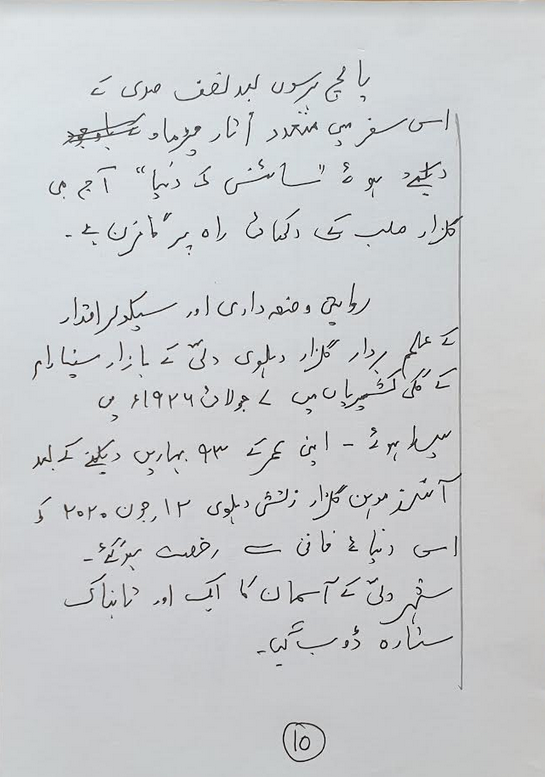 پانچ برسوں بعد نصف صدی کے
اس سفر میں متعدد اُتار چڑھاو کے باوجود
دیکھتے ہوئے "سائنس کی دُنیا" آج بھی
گلزار صاحب کی دکھائی راہ پر گامزن ہے۔
روایتی وضعداری اور سیکولر اقدار
کے علمبردار گلزار دہلوی دلّی کے بازار سیتارام
کے گلی کشمیریاں میں ۷ جولائی ۱۹۲۶ء میں
پیدا ہوئے – اپنی عمر کے ۹۳ بہاریں دیکھنے کے بعد
آنند موہن گلزار زتشی دہلوی ۱۲ جون ۲۰۲۰ کو
اس دنیائے فانی سے رخصت ہوگئے۔
شہر دلّی کے آسمان کا ایک اور تابناک
ستارہ ڈوب گیا۔
۱۵